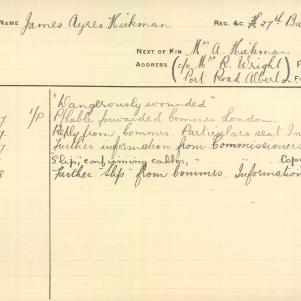 NAME James Ayres Hickman REG. &C. H 27th Ba
NEXT OF KIN Mrs A. Hickman
ADDRESS (c/o Mrs R. Wright) F
Port Road Albert F
"Dangerously wounded"
7 1/P P/Cable forwarded Commrs London.
7 Reply from Commrs. Particulars sent
7 Further information from Commissioners
Slip, confirming cables, " Cop
8 Further "slip" from Commrs. Information